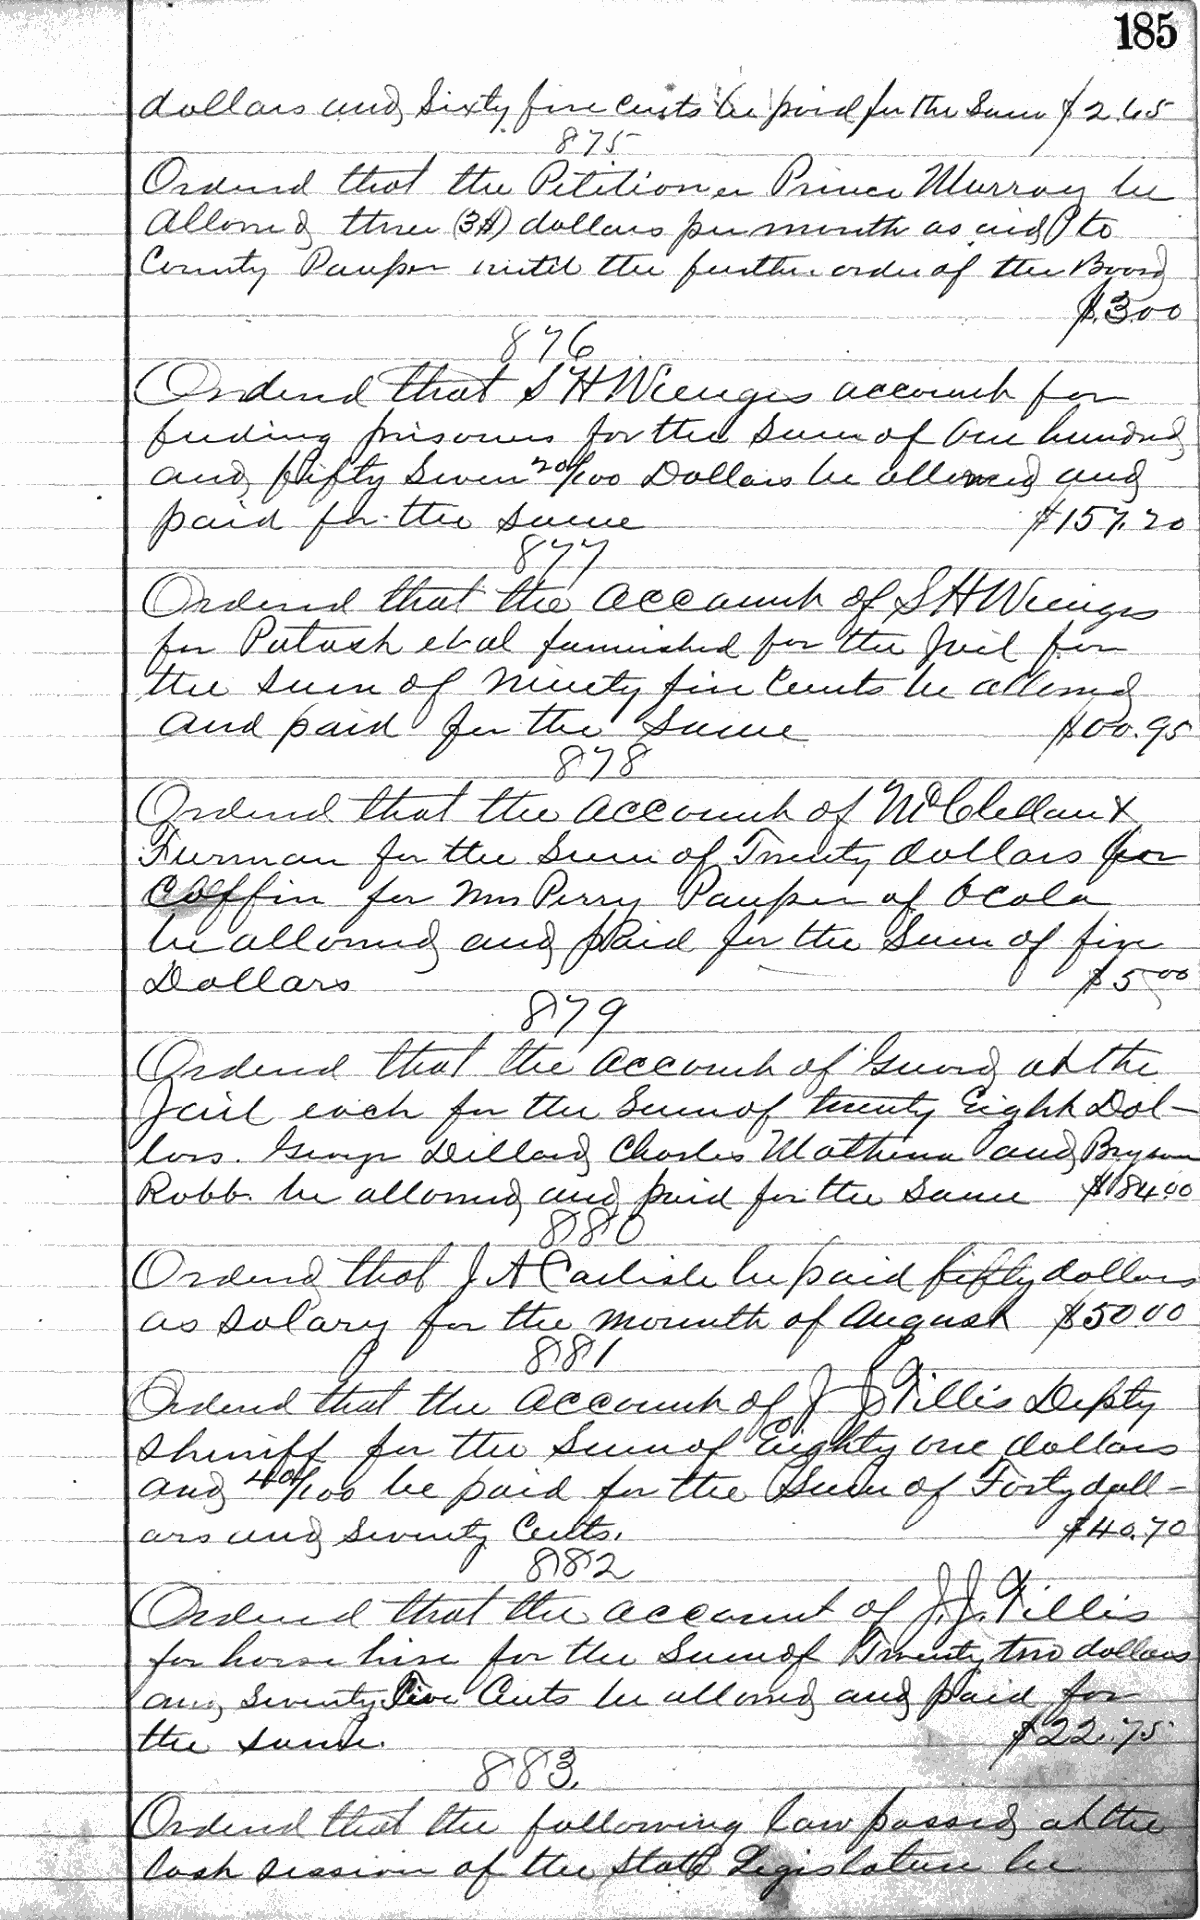 185
dollars and Sixty five Cents be paid for the Same $2.65
875
Ordered that the Petitioner Prince Murray be
allowed three (3$) dollars per month as aid to
County Pauper until the further order of the Board
$3.00
876
Ordered that S H Wienges account for
feeding prisoners for the Sum of One hundred
and fifty Seven 20/100 Dollars be allowed and
paid for the Same $157.20
877
Ordered that the account of S H Wienges
for Potash et al furnished for the Jail for
the Sum of Ninety five Cents be allowed
and paid for the Same $00.95
878
Ordered that the account of McClellan &
Furman for the Sum of Twenty dollars for
Coffin for Mrs Perry Pauper of Ocala
be allowed and paid for the Sum of five
Dollars $5.00
879
Ordered that the account of Guard at the
Jail each for the Sum of twenty Eight Dol-
lars. George Dillard Charles Mathews and Bryson
Robb. be allowed and paid for the Same $184.00
880
Ordered that J A Carlisle be paid fifty dollars
as Salary for the Mounth of August $50.00
881
Ordered that the account of J J Tillis Depty
Sheriff for the Sum of Eighty one dollars
and 40/100 be paid for the Sum of Forty doll-
ars and Seventy Cents. $40.70
882
Ordered that the account of J. J. Tillis
for horse hire for the Sum of Twenty two dollars
and Seventy five Cents be allowed and paid for
the Same. $22.75
883.
Ordered that the following law passed at the
last session of the State Legislature be